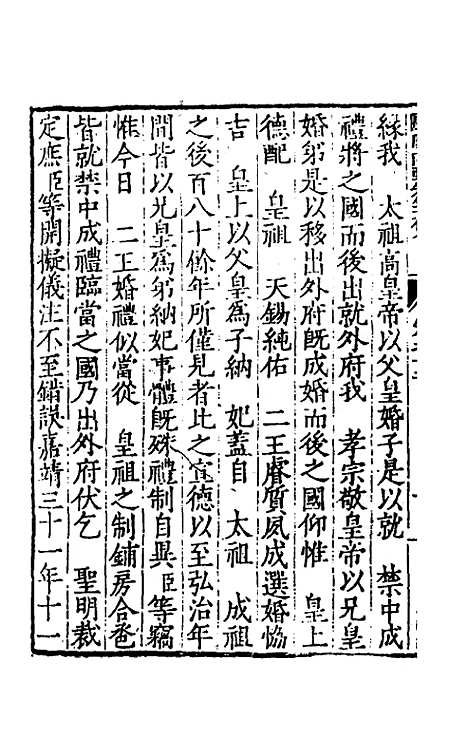 緣我　太祖高皇帝以父皇婚子是以就　禁中成
禮將之國而後出就外府我　孝宗敬皇帝以兄皇
婚弟是以移出外府旣成婚而後之國仰惟　皇上
德配　皇祖　天錫純佑　二王睿質夙成選婚恊
吉　皇上以父皇爲子納　妃蓋自　太祖　成祖
之後百八十餘年所僅見者比之宣德以至弘治年
間皆以兄皇爲弟納妃事體旣殊禮制自異臣等竊
惟今日　二王婚禮似當從　皇祖之制鋪房合卺
皆就禁中成禮臨當之國乃出外府伏乞　聖明裁
定庶臣等開擬儀注不至錯誤嘉靖三十一年十一